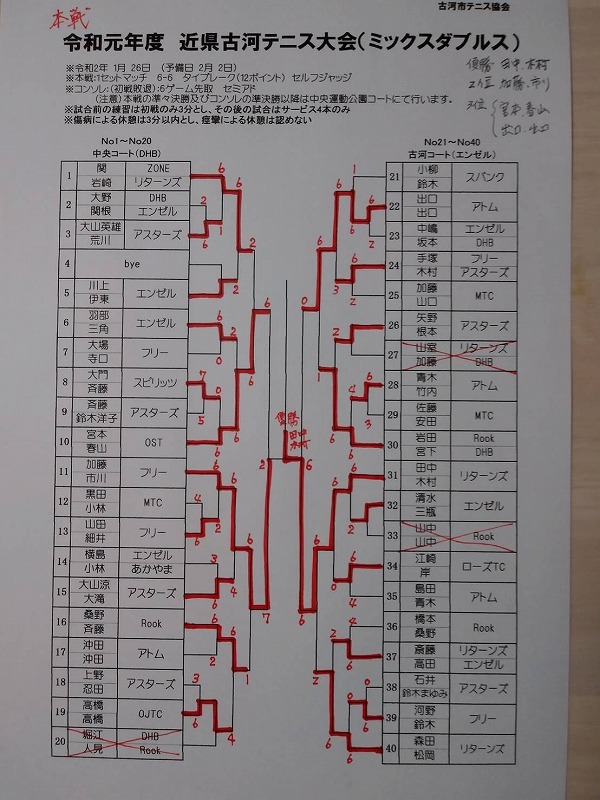 本戦
古河市テニス協会
令和元年度 近県古河テニス大会(ミックスダブルス)
※令和2年 1月 26日 (予備日 2月 2日)
※本戦:1セットマッチ 6-6 タイブレーク(12ポイント) セルフジャッジ
※コンソレ:(初戦敗退):6ゲーム先取 セミアド
(注意)本戦の準々決勝及びコンソレの準決勝以降は中央運動公園コートにて行います。
※試合前の練習は初戦のみ3分とし、その後の試合はサービス4本のみ
※傷病による休憩は3分以内とし、痙攣による休憩は認めない
優勝 田中、木村
2位 加藤、市川
3位 宮本、春山
出口、出口
No1~No20
中央コート(DHB)
1 関 ZONE
岩崎 リターンズ
2 大野 DHB
関根 エンゼル
3 大山英雄 アスターズ
荒川
4 bye
5 川上 エンゼル
伊東
6 羽部 エンゼル
三角
7 大場 フリー
寺口
8 大門 スピリッツ
斉藤
9 斉藤 アスターズ
鈴木洋子
10 宮本 OST
春山
11 加藤 フリー
市川
12 黒田 MTC
小林
13 山田 フリー
細井
14 横島 エンゼル
小林 あかやま
15 大山涼 アスターズ
大滝
16 桑野 Rook
斉藤
17 沖田 アトム
沖田
18 上野 アスターズ
忍田
19 高橋 OJTC
高橋
20 堀江 DHB
人見 Rook
No21~No40
古河コート(エンゼル)
21 小柳 スパンク
鈴木
22 出口 アトム
出口
23 中嶋 エンゼル
坂本 DHB
24 手塚 フリー
木村 アスターズ
25 加藤 MTC
山口
26 矢野 アスターズ
根本
27 山室 リターンズ
加藤 DHB
28 青木 アトム
竹内
29 佐藤 MTC
安田
30 岩田 Rook
宮下 DHB
31 田中 リターンズ
木村
32 清水 エンゼル
三瓶
33 山中 Rook
山中
34 江崎 ローズTC
岸
35 島田 アトム
青木
36 橋本 Rook
桑野
37 斎藤 リターンズ
高田 エンゼル
38 石井 アスターズ
鈴木まゆみ
39 河野 フリー
鈴木
40 森田 リターンズ
松岡
優勝
田中
木村